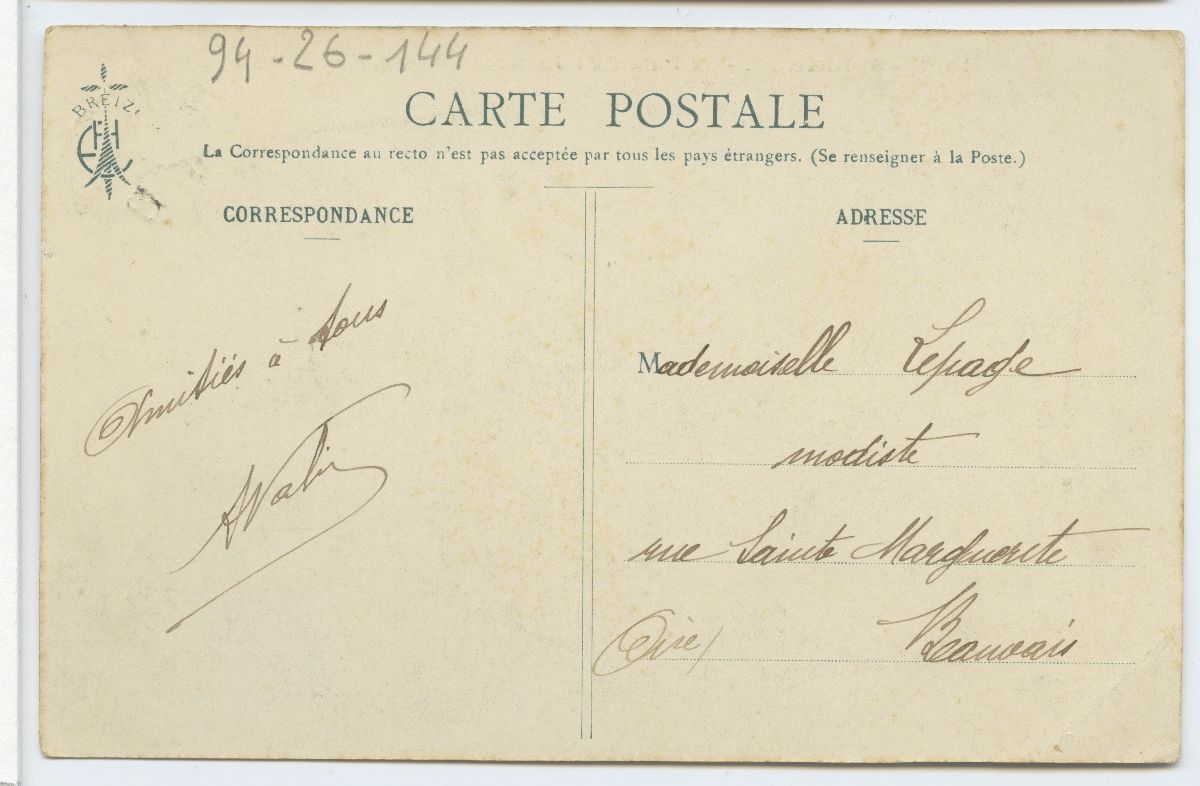 94-26-144
BREIZ
CARTE POSTALE
La Correspondance au recto n'est pas acceptée par tous les pays étrangers. (Se renseigner à la Poste.)
CORRESPONDANCE
Amitiés à tous
ADRESSE
Mademoiselle Lepage
modiste
rue Sainte Marguerite
Beauvais
(Oise)